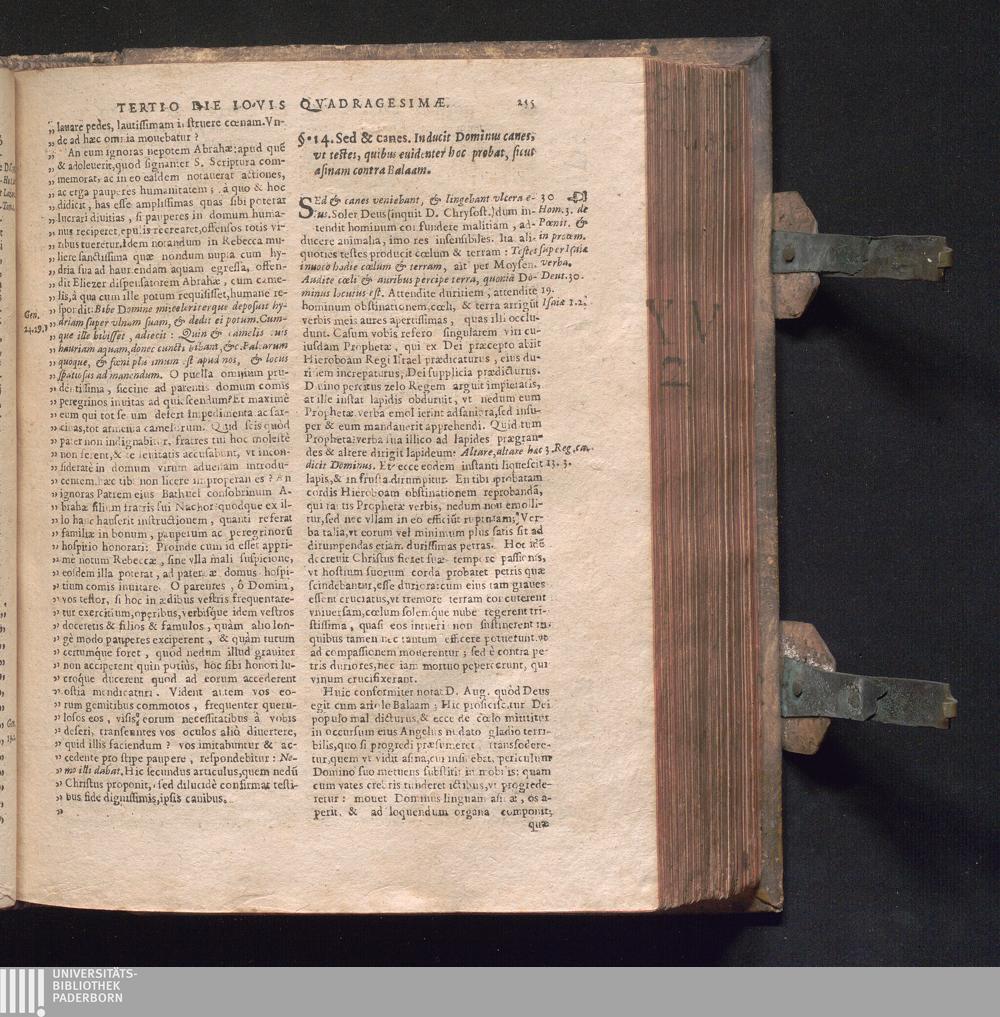 TERTIO DIE IOVIS QVADRAGESIMÆ. 255
„ lauare pedes, lautissimam instruere cœnam. Vn-
„ de ad hæc omnia mouebatur?
„ An eum ignoras nepotem Abrahæ; apud quē
„ & adoleuerit, quod signanter S. Scriptura com-
„ memorat, ac in eo ealdem notauerat actiones,
„ ac erga pauperes humanitatem; à quo & hoc
„ didicit, has esse amplissimas quas sibi poterat
„ lucrari diuitias, si pauperes in domum huma-
„ nus reciperet, epulis recrearet, offensos totis vi-
„ ribus tueretur. Idem notandum in Rebecca mu-
„ liere sanctissima quæ nondum nupta cum hy-
„ dria sua ad hauriendam aquam egressa, offen-
„ dit Eliezer dispensatorem Abrahæ, cum came-
„ lis, à qua cum ille potum requisisset, humane re-
Gen. 24.19.
„ spondit: Bibe Domine mi, celeriterque deposuit hy-
„ driam super vlnam suam, & dedit ei potum. Cum-
„ que ille bibisset, adiecit: Quin & camelis tuis
„ hauriam aquam, donec cuncti bibant, &c. Palearum
„ quoque, & fœni plurimum est apud nos, & locus
„ spatiosus ad manendum. O puella omnium pru-
„ dentissima, siccine ad parentis domum comis
„ peregrinos inuitas ad quiescendum? Et maximè
„ eum qui tot secum defert impedimenta ac sar-
„ cinas, tot armenta camelorum. Quid scis quòd
„ pater non indignabitur, fratres tui hoc molestè
„ non ferent, & te leuitatis accusabunt, vt incon-
„ sideratè in domum virum aduenam introdu-
„ centem, hæc tibi non licere improperantes? An
„ ignoras Patrem eius Bathuel consobrinum A-
„ brahæ filium fratris sui Nachor: quodque ex il-
„ lo hanc hauserit instructionem, quanti referat
„ familiæ in bonum, pauperum ac peregrinorū
„ hospitio honorari: Proinde cum id esset appri-
„ me notum Rebeccæ, sine vlla mali suspicione,
„ eosdem illa poterat, ad paternæ domus hospi-
„ tium comis inuitare. O parentes, ô Domini,
„ vos testor, si hoc in ædibus vestris frequentare-
„ tur exercitium, operibus, verbisque idem vestros
„ doceretis & filios & famulos, quàm alio lon-
„ gè modo pauperes exciperent, & quàm tutum
„ certumque foret, quod nedum illud grauiter
„ non acciperent quin potiùs, hoc sibi honori lu-
„ croque ducerent quod ad eorum accederent
„ ostia mendicaturi. Vident autem vos eo-
„ rum gemitibus commotos, frequenter queru-
„ losos eos, visis, eorum necessitatibus à vobis
„ deseri, transeuntes vos oculos aliò diuertere,
„ quid illis faciendum? vos imitabuntur & ac-
„ cedente pro stipe paupere, respondebitur: Ne-
„ mo illi dabat. Hic secundus articulus, quem nedū
„ Christus proponit, sed dilucidè confirmat testi-
„ bus fide dignissimis, ipsis canibus.
„
§. 14. Sed & canes. Inducit Dominus canes,
vt testes, quibus euidenter hoc probat, sicut
asinam contra Balaam.
SEd & canes veniebant, & lingebant vlcera e- 30
ius. Solet Deus (inquit D. Chrysost.) dum in- Hom. 3. de
tendit hominum confundere malitiam, ad- Pœnit. &
ducere animalia, imo res insensibiles. Ita ali- in proœm.
quoties testes producit cœlum & terram: Testes super Isaiæ
inuoco hodie cœlum & terram, ait per Moysen. verba.
Audite cœli & auribus percipe terra, quoniā Do- Deut. 30.
minus locutus est. Attendite duritiem, attendite 19.
hominum obstinationem, cœli, & terra arrigūt Isaiæ 1.2.
verbis meis aures apertissimas, quas illi occlu-
dunt. Casum vobis refero singularem viri cu-
iusdam Prophetæ, qui ex Dei præcepto abiit
Hieroboam Regi Israel prædicaturus, eius du-
ritiem increpaturus, Dei supplicia prædicturus.
Diuino percitus zelo Regem arguit impietatis,
at ille instat lapidis obduruit, vt nedum eum
Prophetæ verba emollierint adsaniora, sed insu-
per & eum mandauerit apprehendi. Quid tum
Propheta? verba sua illico ad lapides prægran-
des & altere dirigit lapideum: Altare, altare hæc 3. Reg. ca.
dicit Dominus. Et ecce eodem instanti liquescit 13. 3.
lapis, & in frusta dirumpitur. En tibi probatam
cordis Hieroboam obstinationem reprobandā,
qui tantis Prophetæ verbis, nedum non emolli-
tur, sed nec vllam in eo efficiūt rupturam; Ver-
ba talia, vt eorum vel minimum plus satis sit ad
dirumpendas etiam durissimas petras. Hoc idē
decreuit Christus fieret suæ tempore passionis,
vt hostium suorum corda probaret petris quæ
scindebantur, esse duriora: cum eius tam graues
essent cruciatus, vt tremore terram concuterent
vniuersam, cœlum solemque nube tegerent tri-
stissima, quasi eos intueri non sustinerent in,
quibus tamen nec tantum efficere potuerunt, vt
ad compassionem mouerentur; sed è contra pe-
tris duriores, nec iam mortuo pepercerunt, qui
viuum crucifixerant.
Huic conformiter notat D. Aug. quòd Deus
egit cum ariolo Balaam; Hic proficiscitur Dei
populo mal dicturus, & ecce de cœlo mittitur
in occursum eius Angelus nudato gladio terri-
bilis, quo si progredi præsumeret, transfodere-
tur, quem vt vidit asina, cui insidebat, periculum
Domino suo metuens substitit immobilis: quam
cum vates crebris tunderet ictibus, vt progrede-
retur: mouet Dominus linguam asinæ, os a-
perit, & ad loquendum organa componit,
quæ
UNIVERSITÄTS-
BIBLIOTHEK
PADERBORN